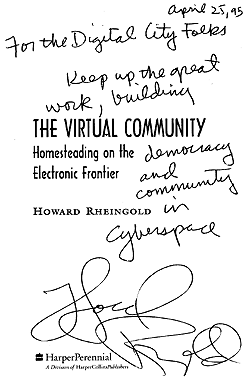 April 25, 95
For the Digital City Folks
Keep up the great
work, building
THE VIRTUAL COMMUNITY
Homesteading on the
Electronic Frontier
democracy
and
community
HOWARD RHEINGOLD
in
cyberspace
Howard
Rheingold
HarperPerennial
A Division of HarperCollinsPublishers